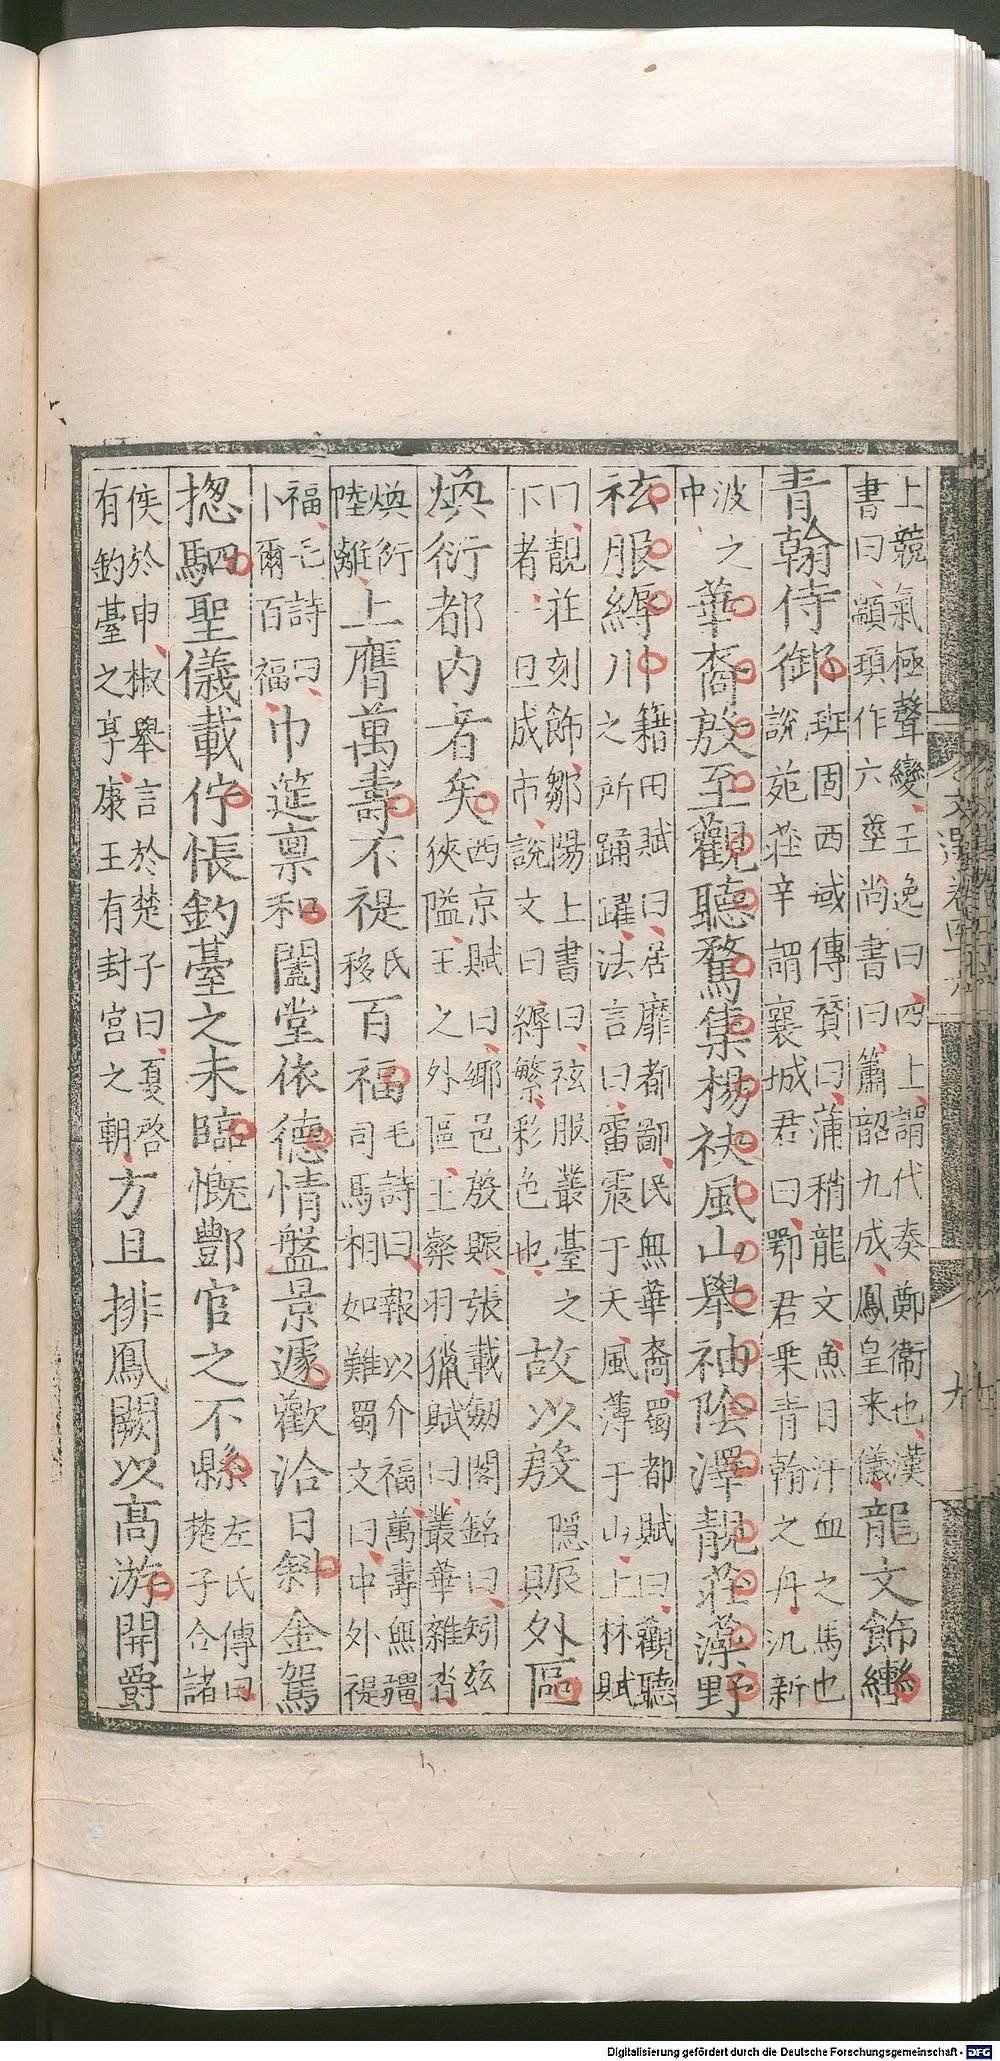 上競氣極聲變王逸曰四上謂代奏鄭衞也漢
書曰顓頊作六莖尚書曰簫韶九成鳳皇来儀龍文飾轡
青翰侍御班固西域傳贊曰蒲稍龍文魚目汗血之馬也
說苑莊辛謂襄城君曰鄂君乗青翰之舟汎新
波之
中華裔殷至觀聽騖集楊袂風山舉袖陰澤靚莊藻野
袨服縟川籍田賦曰居靡都鄙民無華裔蜀都賦曰觀聽
之所踊躍法言曰雷震于天風薄于山上林賦
曰靚莊刻飾鄒陽上書曰袨服叢臺之
下者一旦成市說文曰縟繁彩色也故以殷隱賑外區
煥衍都内者矣西京賦曰鄉邑殷賑張載劒閣銘曰矧兹
狹隘王之外區王粲羽獵賦曰叢華雜沓
煥衍
陸離上膺萬壽下禔氏移百福毛詩曰報以介福萬壽無疆
司馬相如難蜀文曰中外禔
福毛詩曰
卜爾百福巾筵禀和闔堂依德情盤景遽歡洽日斜金駕
揔駟聖儀載佇悵鈞臺之未臨慨酆宫之不縣左氏傳曰
楚子合諸
侯於申椒舉言於楚子曰夏啓
有鈞臺之享康王有封宫之朝方且排鳳闕以高游開爵
文選卷四十六
九
Digitalisierung gefördert durch die Deutsche Forschungsgemeinschaft - DFG